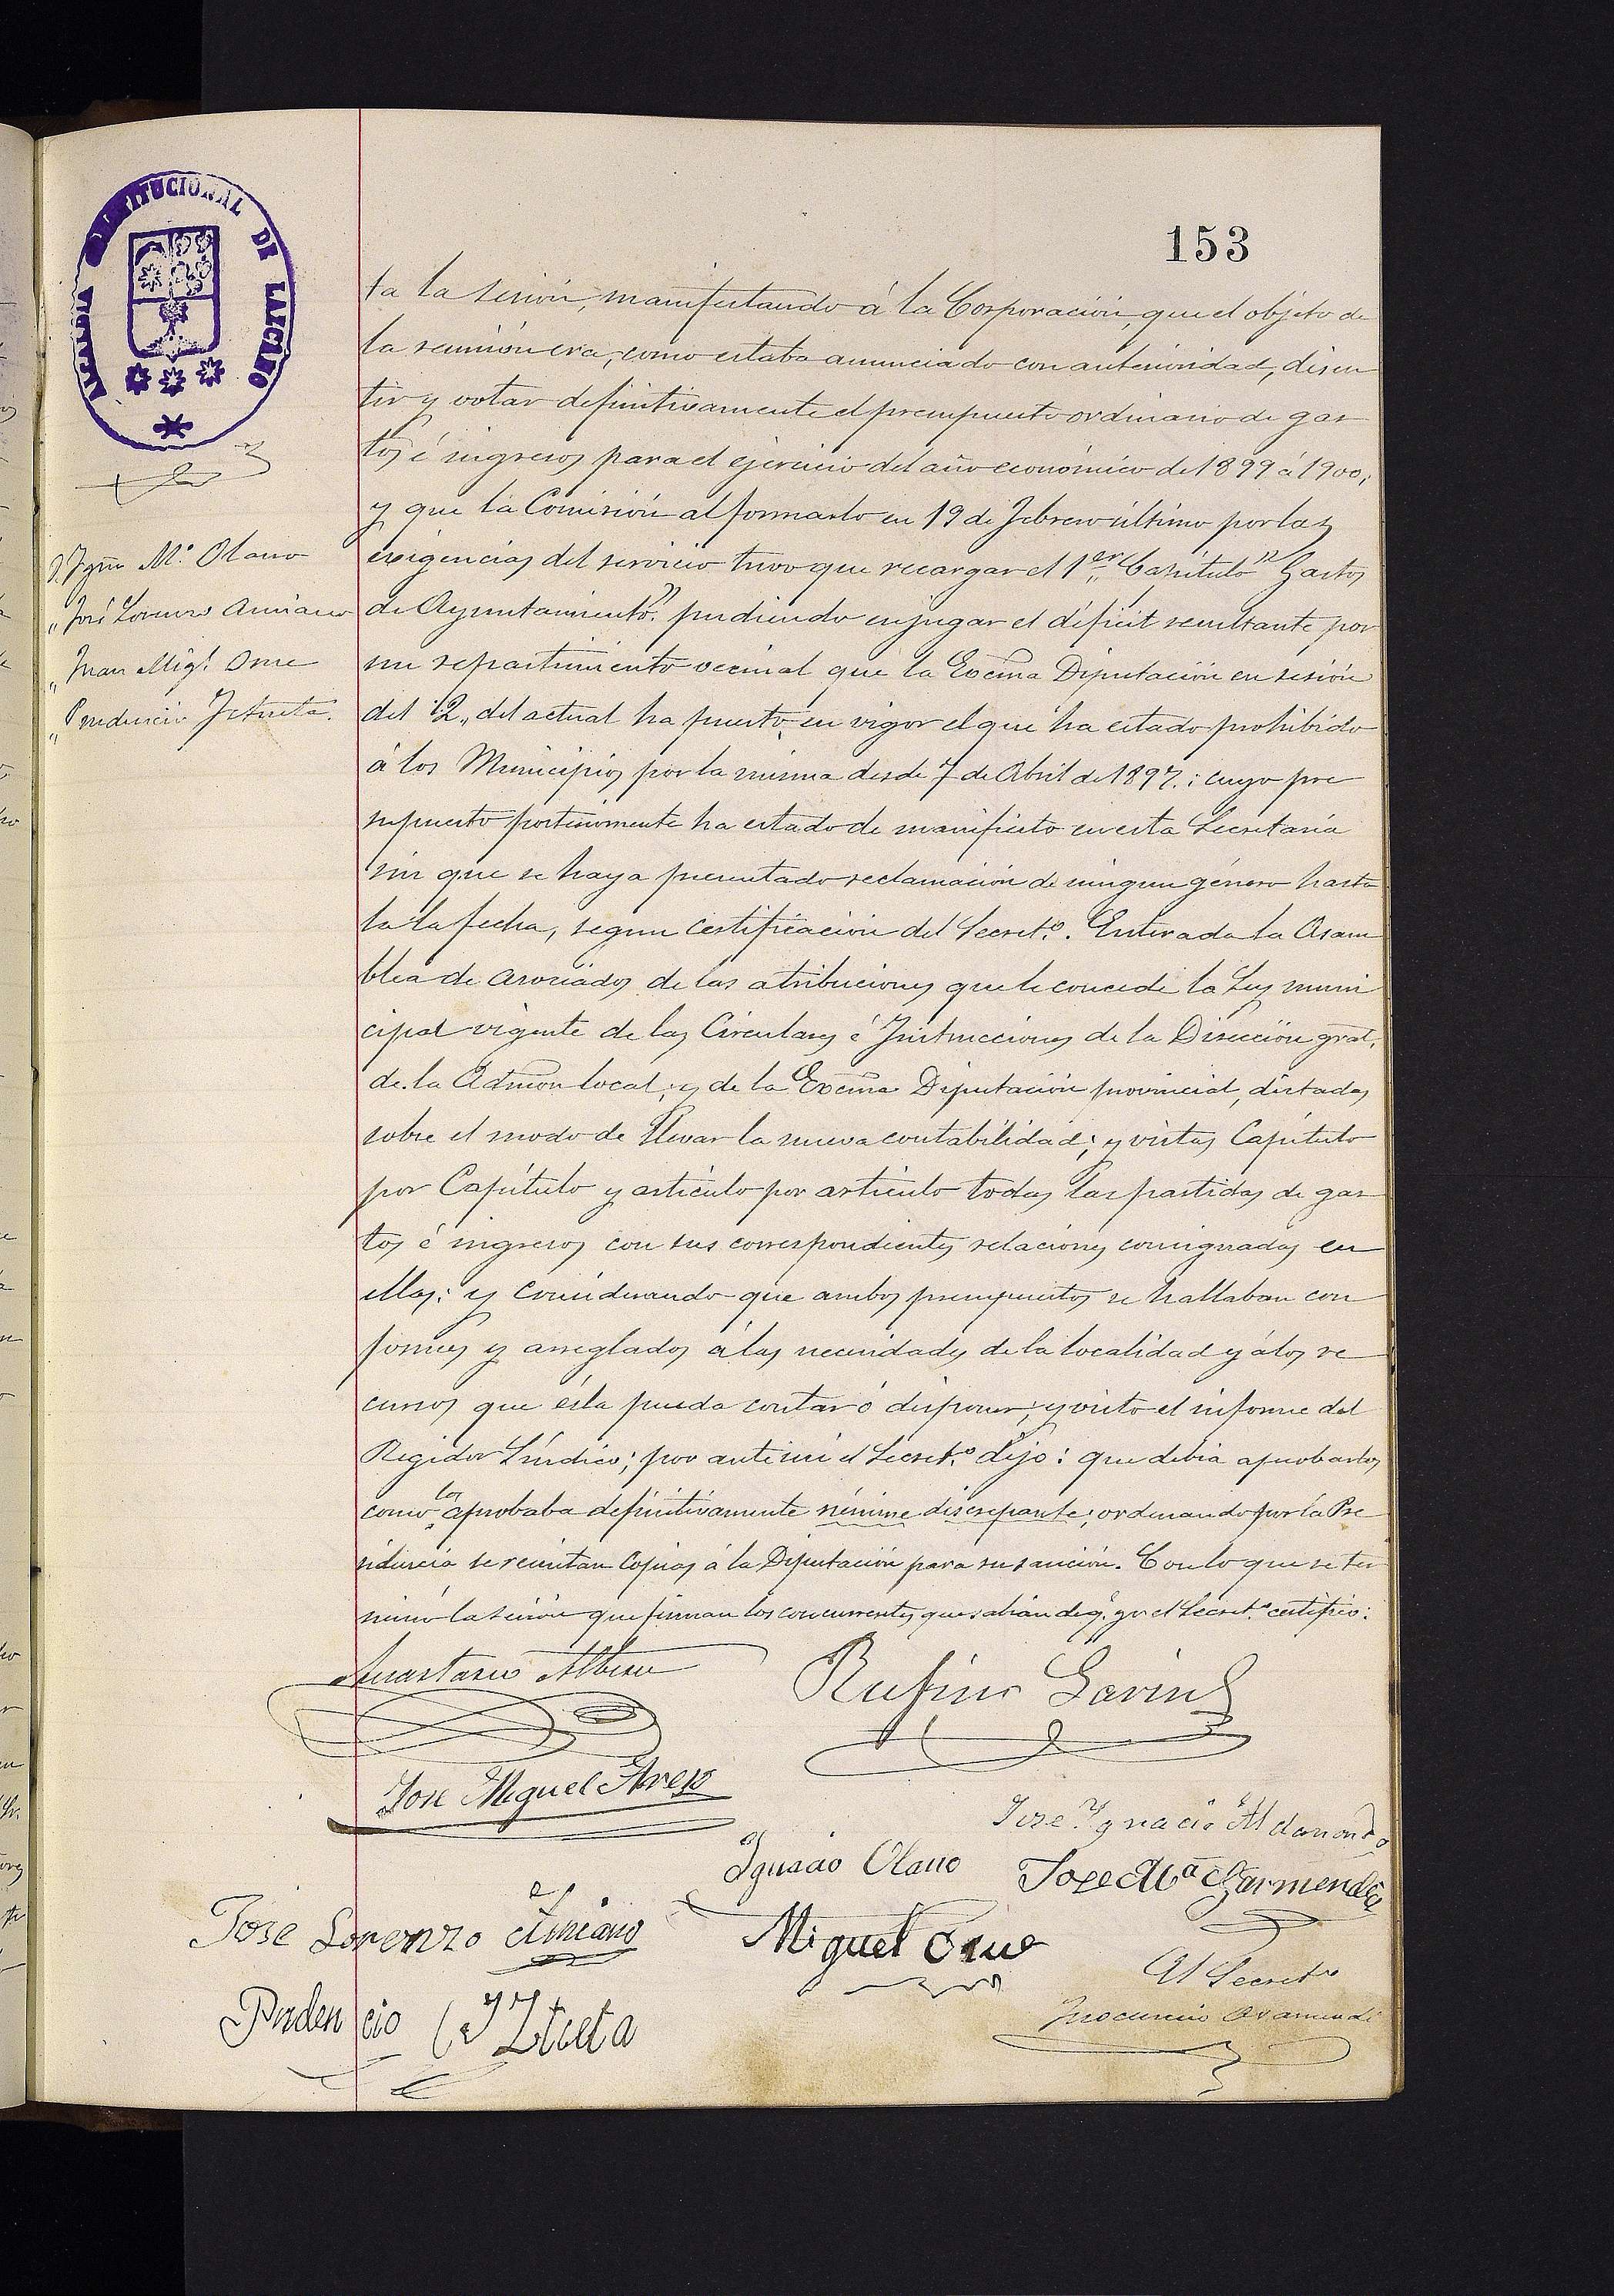 153
CONSTITUCIONAL DE LAZCANO
ALCALDIA
D. Ygnº Mª Olano
„ José Lorenzo Amiano
„ Juan Migl Orue
„ Prudencio Iztueta.
ta la sesión, manifestando á la Corporación, que el objeto de
la reunión era, como estaba anunciado con anterioridad, discu
tir y votar definitivamente el presupuesto ordinario de gas
tos é ingresos para el ejercicio del año económico de 1899 á 1900,
y que la Comisión al formarlo en 19 de Febrero último por las
exigencias del servicio tuvo que recargar el 1er Capítulo "Gastos
de Ayuntamiento". pudiendo enjugar el déficit resultante por
un repartimiento vecinal que la Excma Diputación en sesión
del 12„ del actual ha puesto en vigor el que ha estado prohibido
á los Municipios por la misma desde 7 de Abril de 1897.: cuyo pre
supuesto posteriormente ha estado de manifiesto en esta Secretaría
sin que se haya presentado reclamación de ningun género hasta
la fecha, segun certificación del Secretº. Enterada la Asam
blea de asociados de las atribuciones que le concede la Ley muni
cipal vigente de las Circulares é Instrucciones de la Dirección gral.
de la Admon local, y de la Excma Diputación provincial, dictadas
sobre el modo de llevar la nueva contabilidad; y vistas Capítulo
por Capítulo y artículo por artículo todas las partidas de gas
tos é ingresos con sus correspondientes relaciones consignadas en
ellas: y considerando que ambos presupuestos se hallaban con
formes y arreglados á las necesidades de la localidad y á los re
cursos que ésta pueda contar ó disponer; y visto el informe del
Regidor Síndico; por ante mi el Secretº dijo: que debia aprobarlos
como los aprobaba definitivamente némine discrepante; ordenando por la Pre
sidencia se remitan Copias á la Diputación para su sanción. Con lo que se ter
minó la sesión que firman los concurrentes que sabian de q. yo el Secretº certifico:
Anastasio Albisu
Rufino Garin
Jose Miguel
Jose Ygnacio Aldanondo
Ygnacio Olano
Jose Mª Garmendia
Jose Lorenzo Amiano
Miguel Orue
El Secretº
Prudencio Iztueta
Inocencio Aramendi